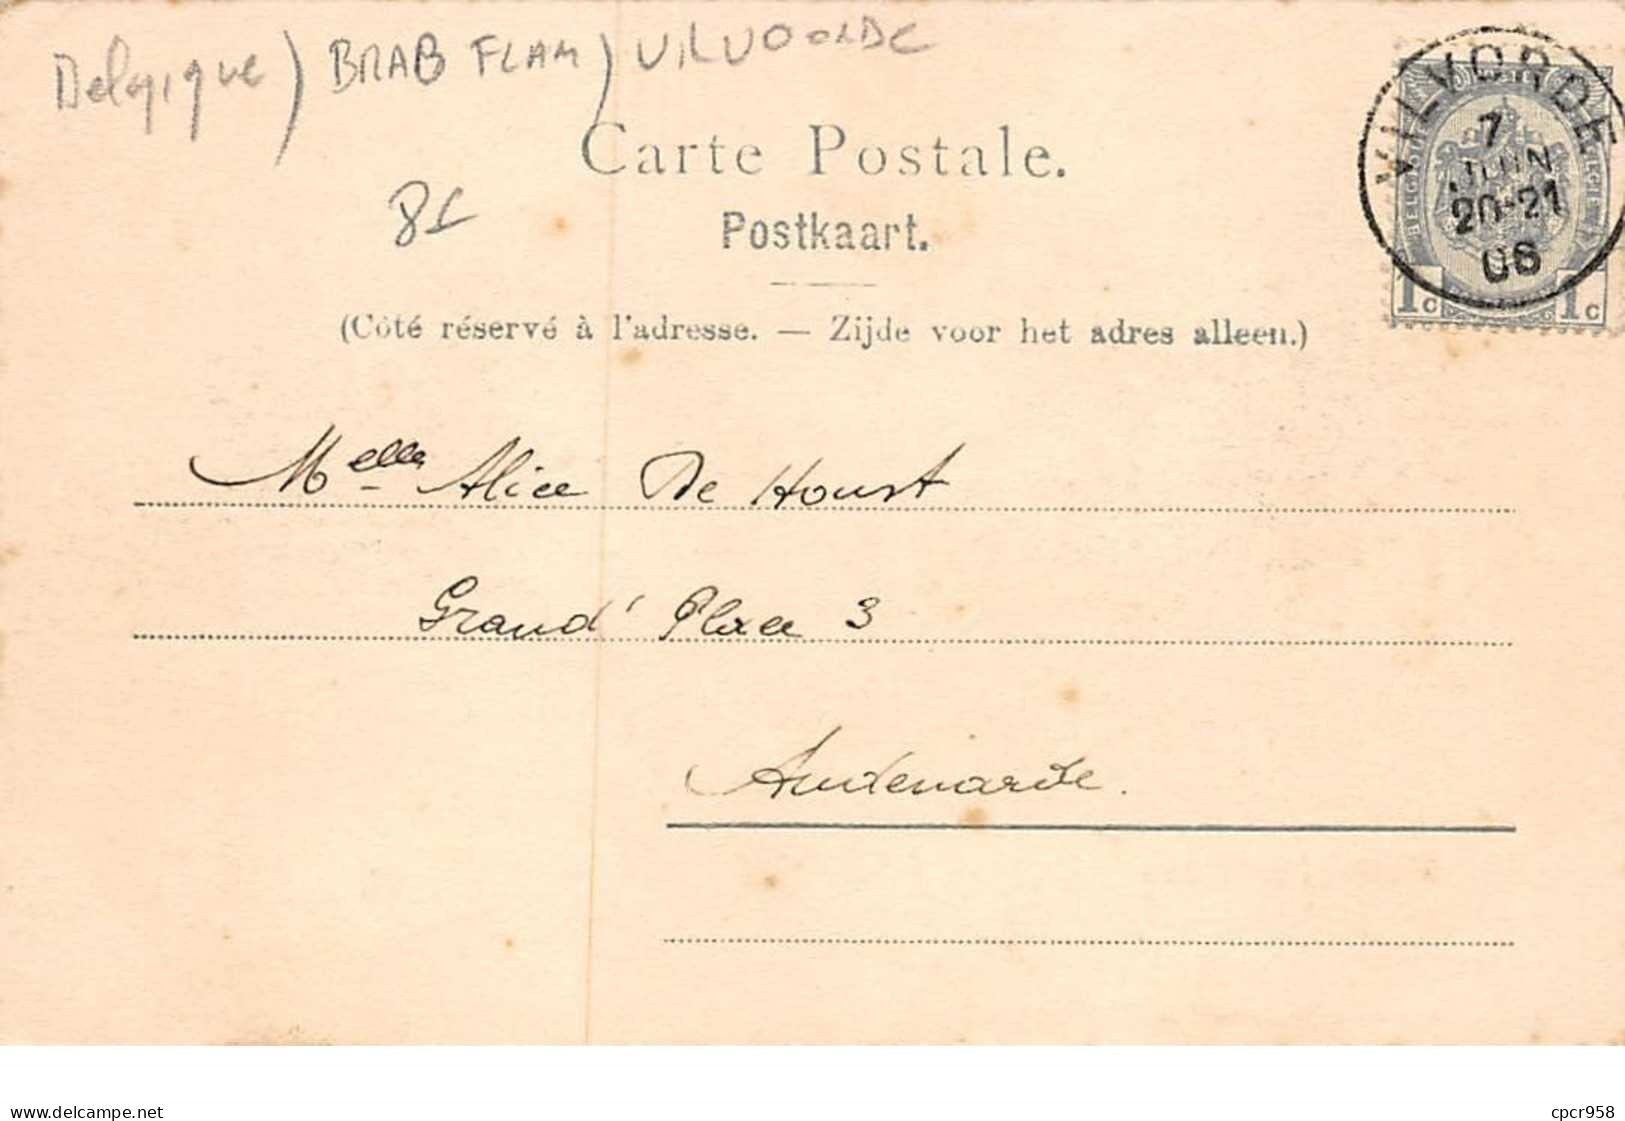 Belgique) BRAB FLAM) VILVOORDE
VILVORDE
7
JUIN
20-21
06
1c 1c
Carte Postale.
Postkaart.
(Côté réservé à l'adresse. — Zijde voor het adres alleen.)
Melle Alice De Houst
Grand' Place 3
Audenarde.
www.delcampe.net
cpcr958